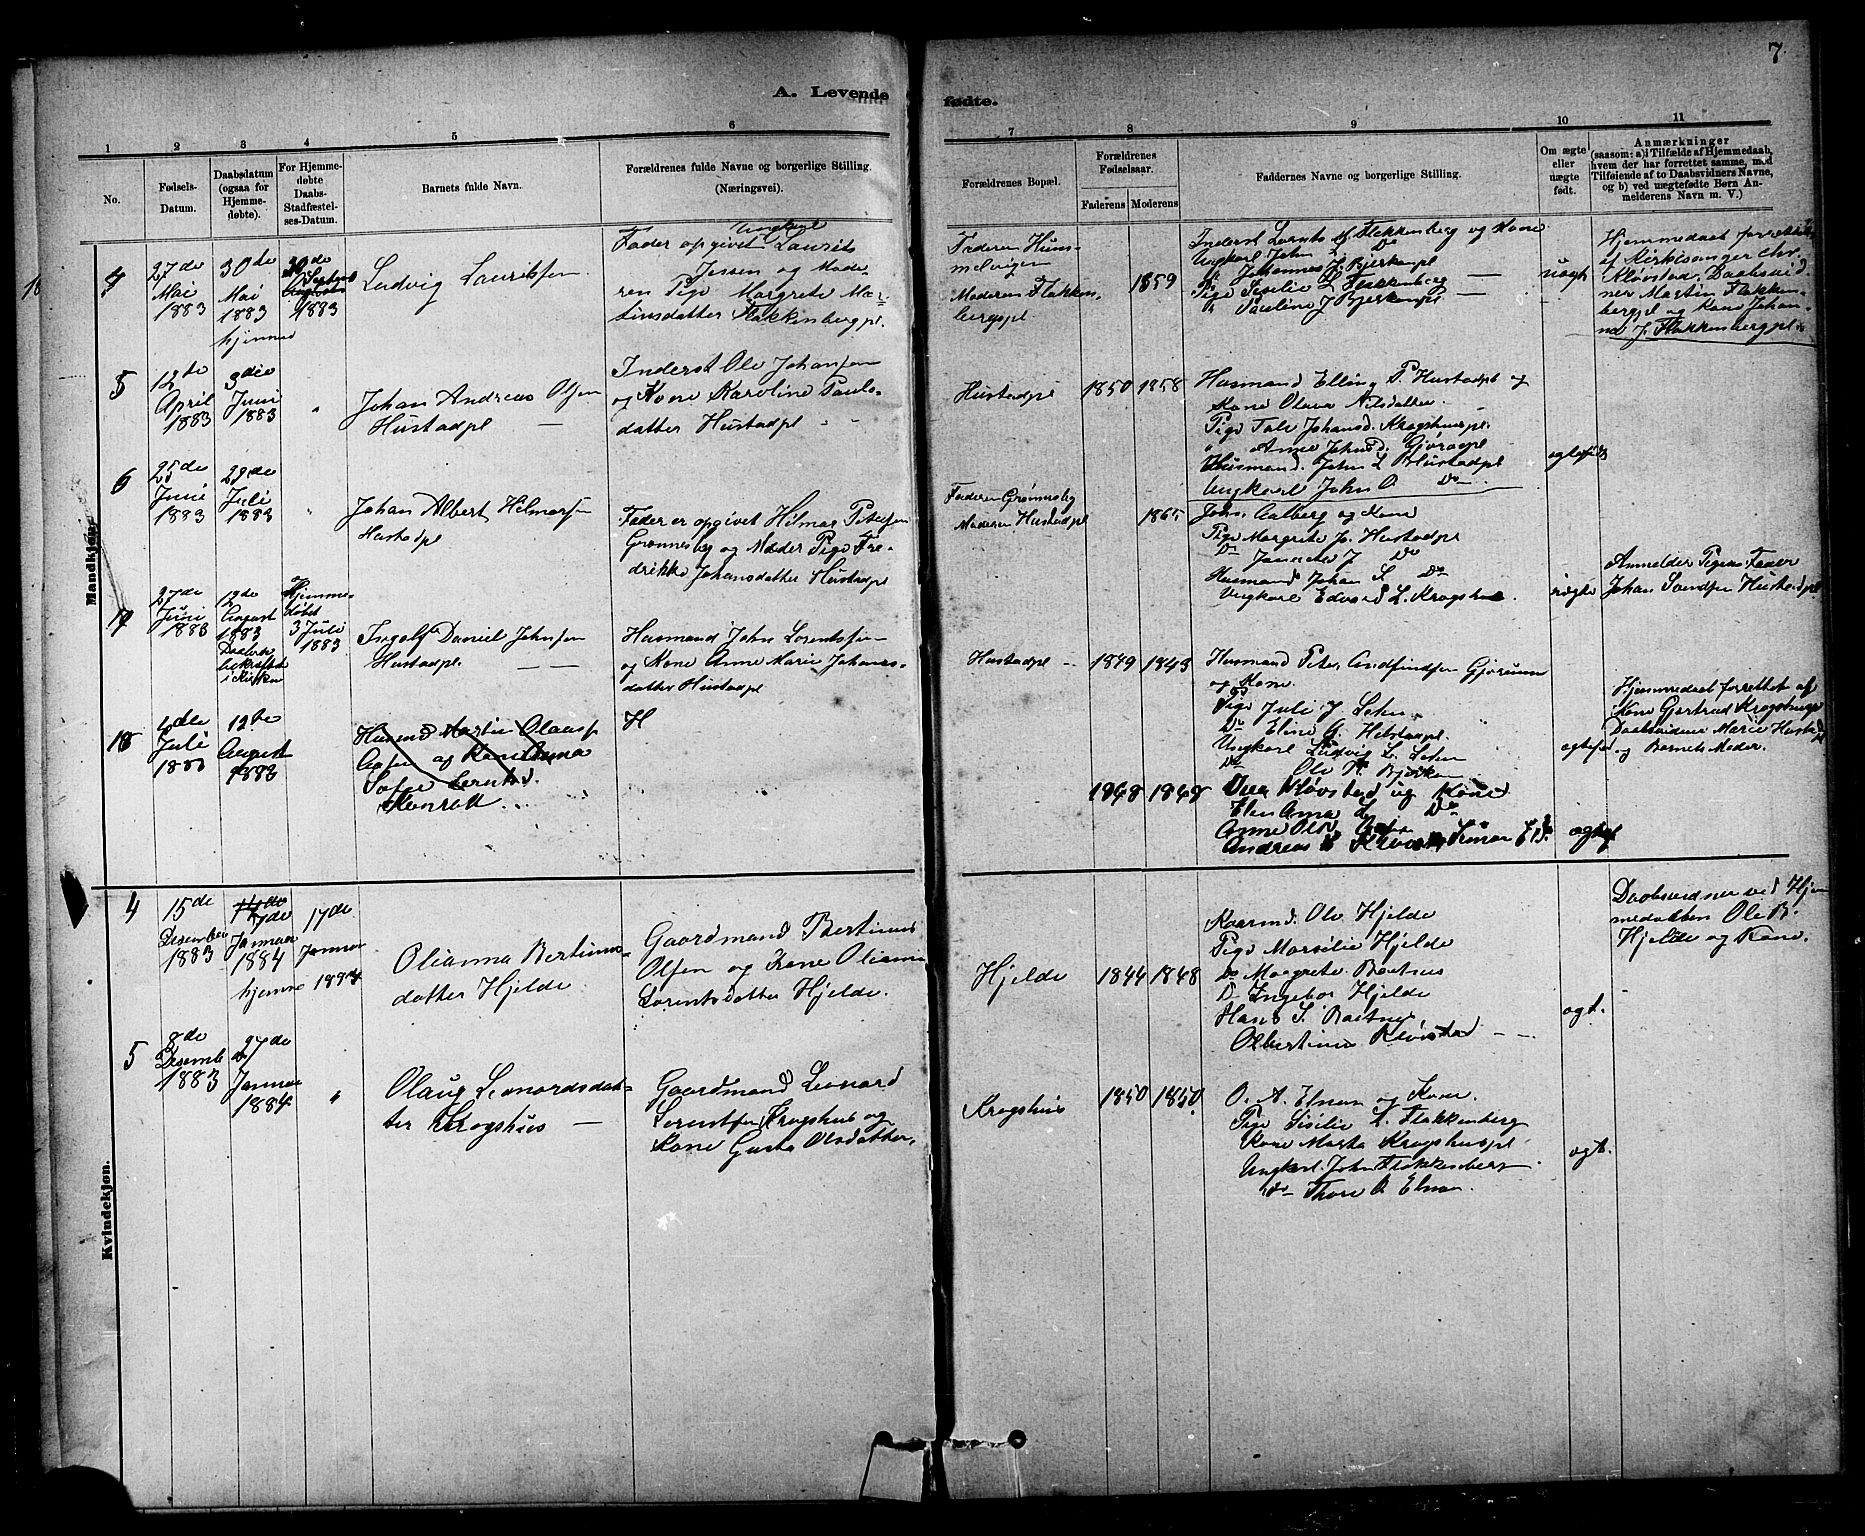 7
A. Levende
fødte.
1 2 3 4 5 6
7 8 9 10 11
No.
Fødsels-
Datum.
Daabsdatum
(ogsaa for
Hjemme-
døbte).
For Hjemme-
døbte
Daabs-
Stadfæstel-
ses-Datum.
Barnets fulde Navn.
Forældrenes fulde Navne og borgerlige Stilling.
(Næringsvei).
Forældrenes Bopæl.
Forældrenes
Fødselsaar.
Faderens Moderens
Faddernes Navne og borgerlige Stilling.
Om ægte
eller
uægte
født.
Anmærkninger
(saasom: a) i Tilfælde af Hjemmedaab,
hvem der har forrettet samme, med
Tilføielse af to Daabsvidners Navne,
og b) ved uægtefødte Børn An-
melderens Navn m. V.)
Mandkjøn.
4
27de
Mai
1883
30de
Mai
1883
hjemme
30de
1883
Ludvig Lauritsen
Ungkarl
Fader opgivet Laurits
Jessen og Mode-
ren Pige Margrete Mar-
tinsdatter Flakkenbergpl.
Faderen Hum-
melvigen
Moderen Flakken-
bergspl
1859
Inderst Lornts M Flakkenberg og Kone
Ungkarl John L Do
Johannes J. Bjerkenpl
Pige Sisilie L Flakkenberg
Pauline J Bjerkenpl.
uægte
Hjemmedaab forrettet
af Kirkesanger Chr.
Kløvstad. Daabsvid
ner Martin Flakken-
bergpl og Kone Johan-
na J. Flakkenbergpl.
5
12te
April
1883
3die
Juni
1883
"
Johan Andreas Olsen
Hustadpl
Inderst Ole Johansen
og Kone Karoline Pauls-
datter Hustadpl
Hustadpl
1850 1858
Husmand Elling P. Hustadpl og
Kone Olava Nilsdatter.
Pige Tale Johansd. Krogshuspl.
" Anne Johnsd. Gjøraapl
Husmand John L Hustadpl
Ungkarl John O Do
ægtefødt
6
25de
Juni
1883
29de
Juli
1883
"
Johan Albert Hilmarsen
Hustadpl
Fader er opgivet Hilmar Petersen
Grønnesby og Moder Pige Fre-
drikke Johansdatter Hustadpl
Faderen Grønnesby
Moderen Hustadpl
1865
Johs. Aalberg og Kone
Pige Margrete Jo. Hustadpl
Do Jannete J Do
Husmand Johan S. Do
Ungkarl Edvard L. Krogshus.
uægte
Anmelder Pigens Fader
Johan Hustadpl
7
27de
Juni
1883
12te
August
1883
Daaben
bekræftet
i Kirken
Hjemme-
døbt
3 Juli
1883
Ingolf Daniel Johnsen
Hustadpl.
Husmand John Lorentssen
og Kone Anne Marie Johans-
datter Hustadpl
Hustadpl
1849 1843
Husmand Peter Andfindsen Gjørum
og Kone.
Pige Juli J Leten
Do Eline G. Hustadpl.
Ungkarl Ludvig L. Leten
Do Ole P. Bjerken
ægtefød
Hjemmedaab forrettet af
Kone Gjertrud Krogshuspl
Daabsvidner Marie Hustadpl
og Barnets Moder.
4de
Juli
1883
12te
August
1883
Husmd Martin Olaus
og Kone Anna
Sofie Berntsd.
H
1848 1848
Kløvstad og Kone
Elen Anna L Do
Anne Ols
Andreas
ægtef
Kvindekjøn.
4
15de
Desember
1883
17de
Januar
1884
hjemme
17de
Januar
1884
Olianna Bertinus-
datter Hjelde
Gaardmand Bertinus
Olsen og Kone Olianna
Lorentsdatter Hjelde.
Hjelde
1844 1848
Kaarmd. Ole Hjelde
Pige Marsilie Hjelde
Do Margrete Baitnes
D. Ingebor Hjelde
Hans S. Baitnes
Olbertine Kløvstad
ægt.
Daabsvidner ved Hjem
medaaben Ole B.
Hjelde og Kone.
5
8de
Desemb
1883
27de
Januar
1884
"
Olaug Leonardsdat-
ter Krogshus
Gaardmand Leonard
Lorentsen Krogshus og
Kone Gusta Olsdatter.
Krogshus
1850 1850
O. A. Elnan og Kone.
Pige Sisilie L. Flakkenberg
Kone Marta Krogshuspl
Ungkarl John Flakkenberg
do Thore A Elnan.
ægt.